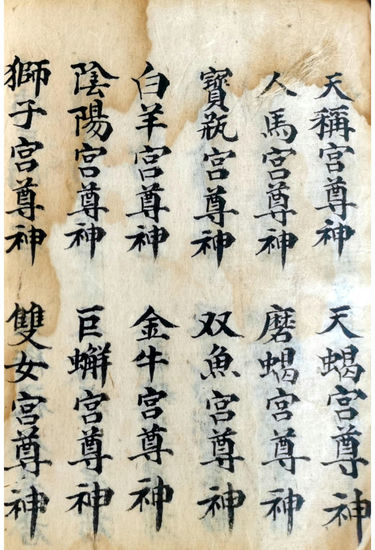 天稱宮尊神
天蝎宮尊神
人馬宮尊神
磨蝎宮尊神
寳瓶宮尊神
双魚宮尊神
白羊宮尊神
金牛宮尊神
陰陽宮尊神
巨蠏宮尊神
獅子宮尊神
雙女宮尊神